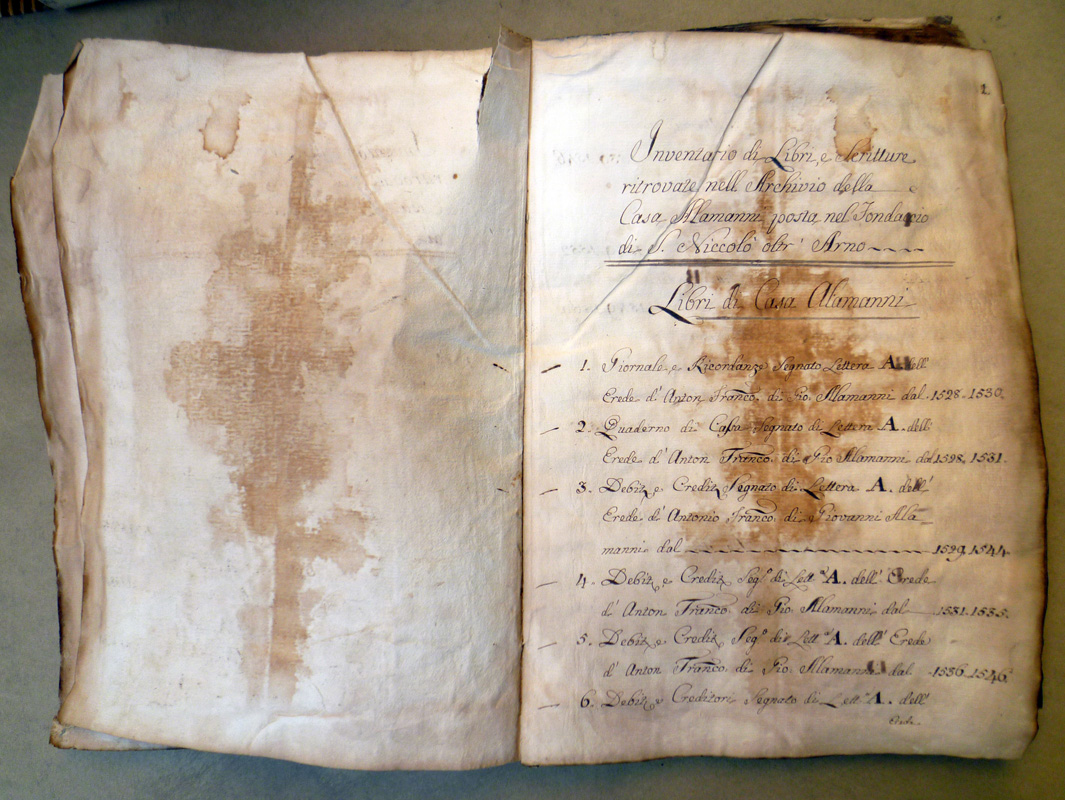 1.
Inventario di Libri, e Scritture
ritrovate nell Archivio della
Casa Alamanni posta nel Fondaccio
di S. Niccolò oltr' Arno
Libri di Casa Alamanni
1. Giornale, e Ricordanze Segnato Lettera A. dell'
Erede d' Anton Franco. di Gio. Alamanni dal 1528. 1530.
2. Quaderno di Cassa Segnato di Lettera A. dell'
Erede d' Anton Franco. di Gio Alamanni dal 1598. 1531.
3. Debit, e Credit, Segnato di Lettera A. dell'
Erede d' Antonio Franco. di Giovanni Ala=
manni dal 1529. 1544.
4. Debit, e Credit, Seg.o di Lett.a A. dell' Erede
d' Anton Franco. di Gio. Alamanni dal 1531. 1535.
5. Debit, e Credit, Seg.o di Lett.a A. dell' Erede
d' Anton Franco. di Gio. Alamanni dal 1536. 1546.
6. Debit, e Creditori Segnato di Lett.a A. dell'
Erede.